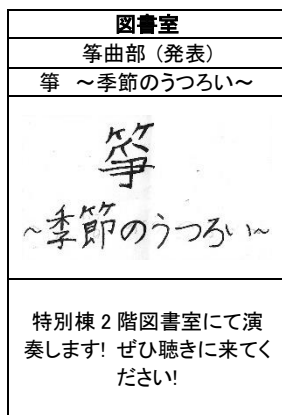 図書室
筝曲部（発表）
箏 ～季節のうつろい～
箏
～季節のうつろい～
特別棟2階図書室にて演
奏します! ぜひ聴きに来てく
ださい!